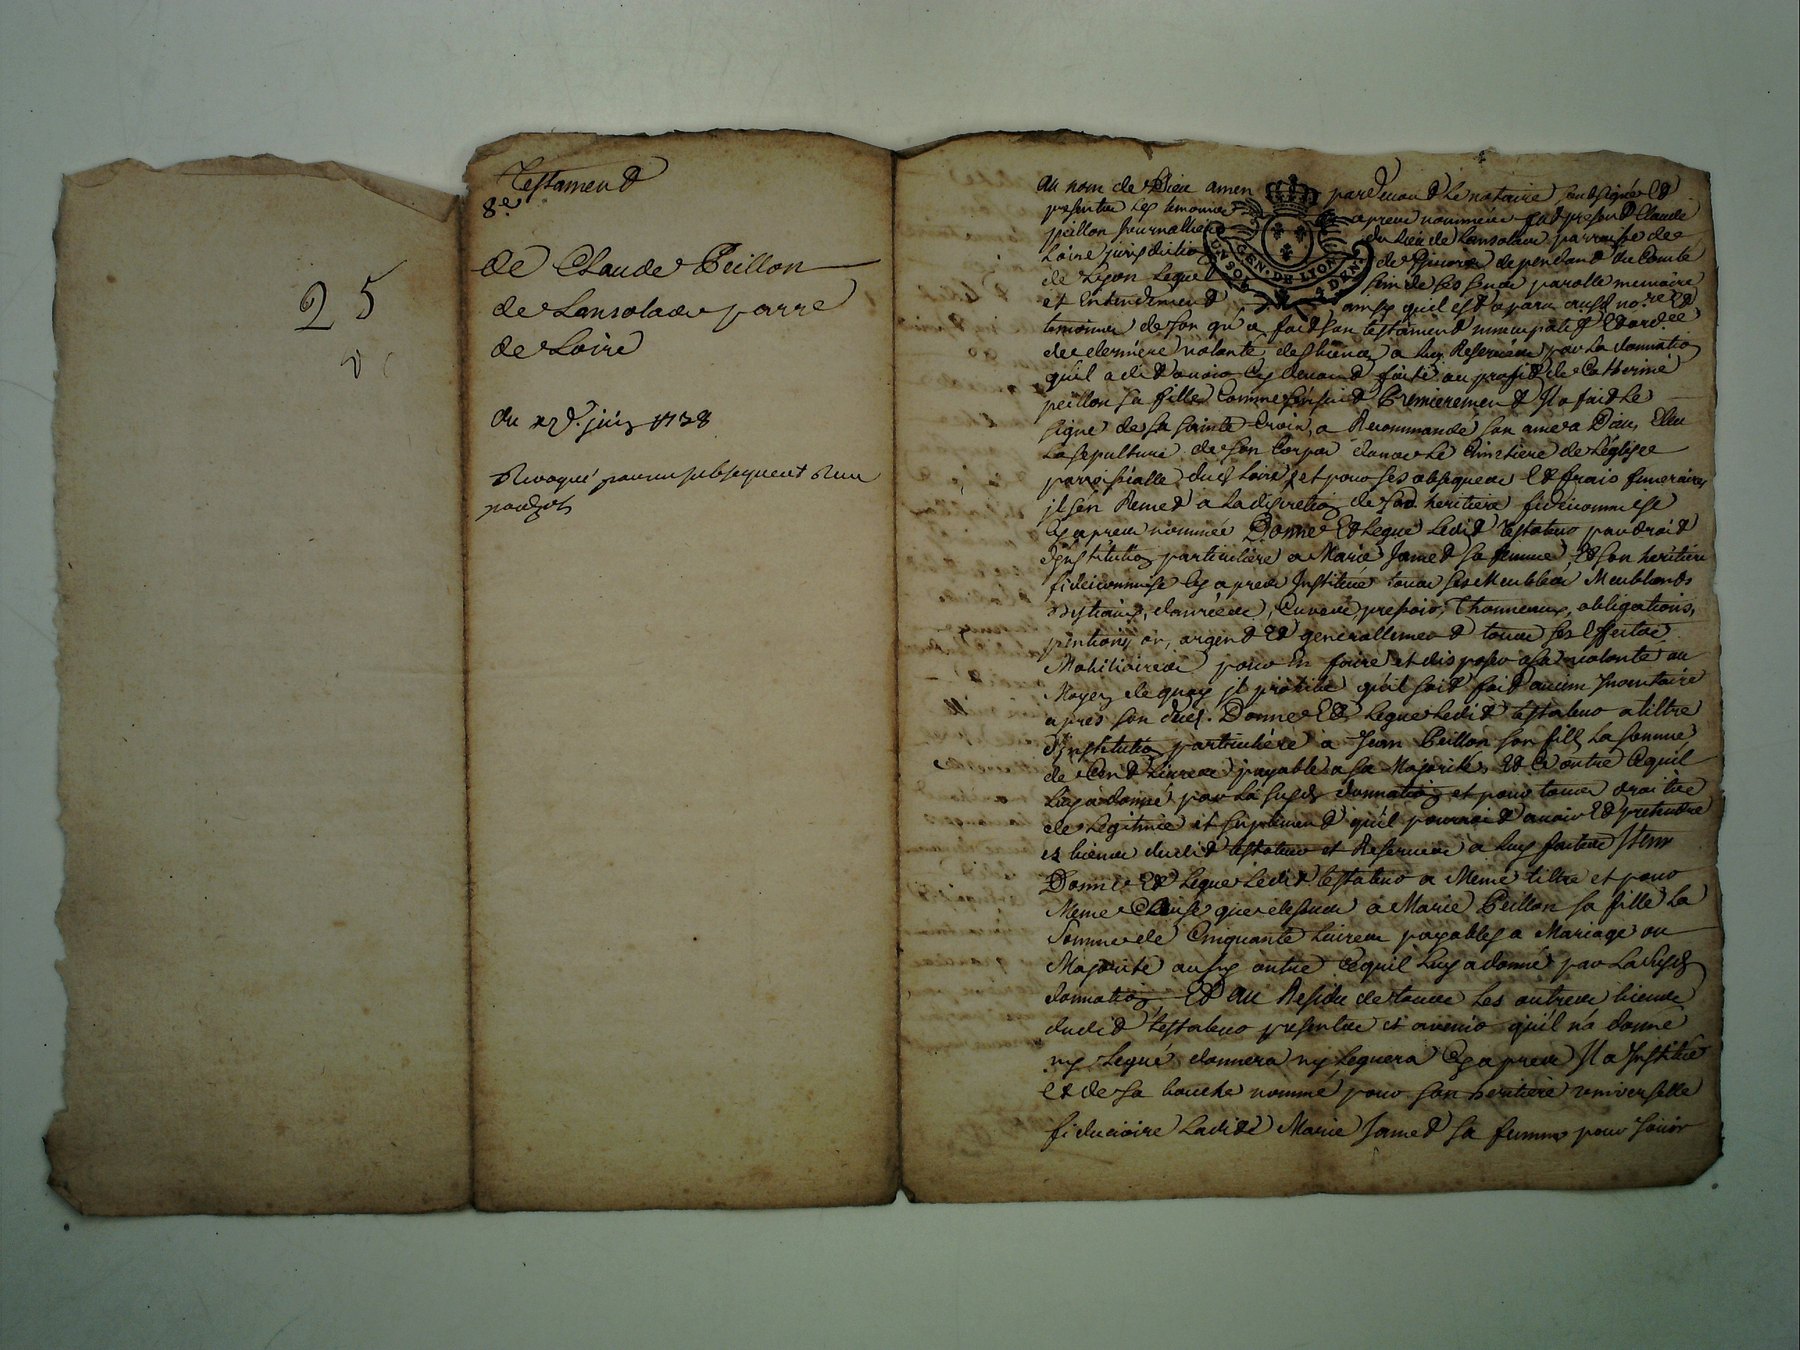 25
Testament
8e
de Claude Peillon
de Lansolade parre
de Loire
du juin 1738
Revoqué par un subsequent
Au nom de Dieu amen pardevant le notaire soubsigné et
presentes les temoins apres nommes fut present Claude
peillon journallier du lieu de Lansolade parroisse de
Loire jurisdiction de Givors dependant du Comté
de Lyon Lequel sein de ses sens parolle memoire
et Entendement ainsy quil est aparu audt no.re et
temoins de son gré a fait son testament nuncupatif et ord.ce
de derniere volonté des biens a luy Reservés par la donnation
qu'il a dit avoir cy devant faite au profit de Catherine
peillon sa fille Comme sensuit Premierement Il a fait le
signe de la sainte Croix, a Recommandé son ame a Dieu, Eleu
La sepulture de son Corps dans le Cimetiere de L'eglise
parroissialle dud Loire, et pour ses obseques et frais funeraires
il s'en Remet a la discretion de sad heritiere fideicommise
Cy apres nommée Donne et Legue Ledit testateur par droit
d'Institution particuliere a Marie Jamet sa femme, et son heritiere
fideicommise Cy apres Instituée tous ses Meubles Meublants
bestiaux, danrées, Cuves, pressoir, Thonneaux, obligations,
pentions, or, argent et generallement tous ses Effets
Mobiliaires pour En faire et disposer a sa volonté au
Moyen de quoy il prohibe qu'il soit fait aucun Inventaire
apres son decès. Donne et Legue Ledit testateur a tiltre
d'Institution particuliére a Jean Peillon son fils la somme
de Cent Livres payable a sa Majorité, et Ce outre Cequil
Luy a donné par la susd donnation et pour tous droits
de Legitime et suplement qu'il pourroit avoir et pretendre
es biens dudit testateur et Reserves a Luy faites Item
Donne et Legue Ledit testateur a Meme tiltre et pour
Meme Clause que dessus a Marie Peillon sa fille la
Somme de Cinquante Livres payables a Mariage ou
Majorité aussy outre Cequil Luy a donné par La susd
donnation, Et au Residu de tous Les autres biens
dudit testateur presents et avenir qu'il n'a donné
ny Legué, donnera ny Leguera Cy apres Il a Institué
et de sa bouche nommé pour son heritiere universelle
fiduciaire Ladite Marie Jamet sa femme pour Jouir
GEN. DE LYON